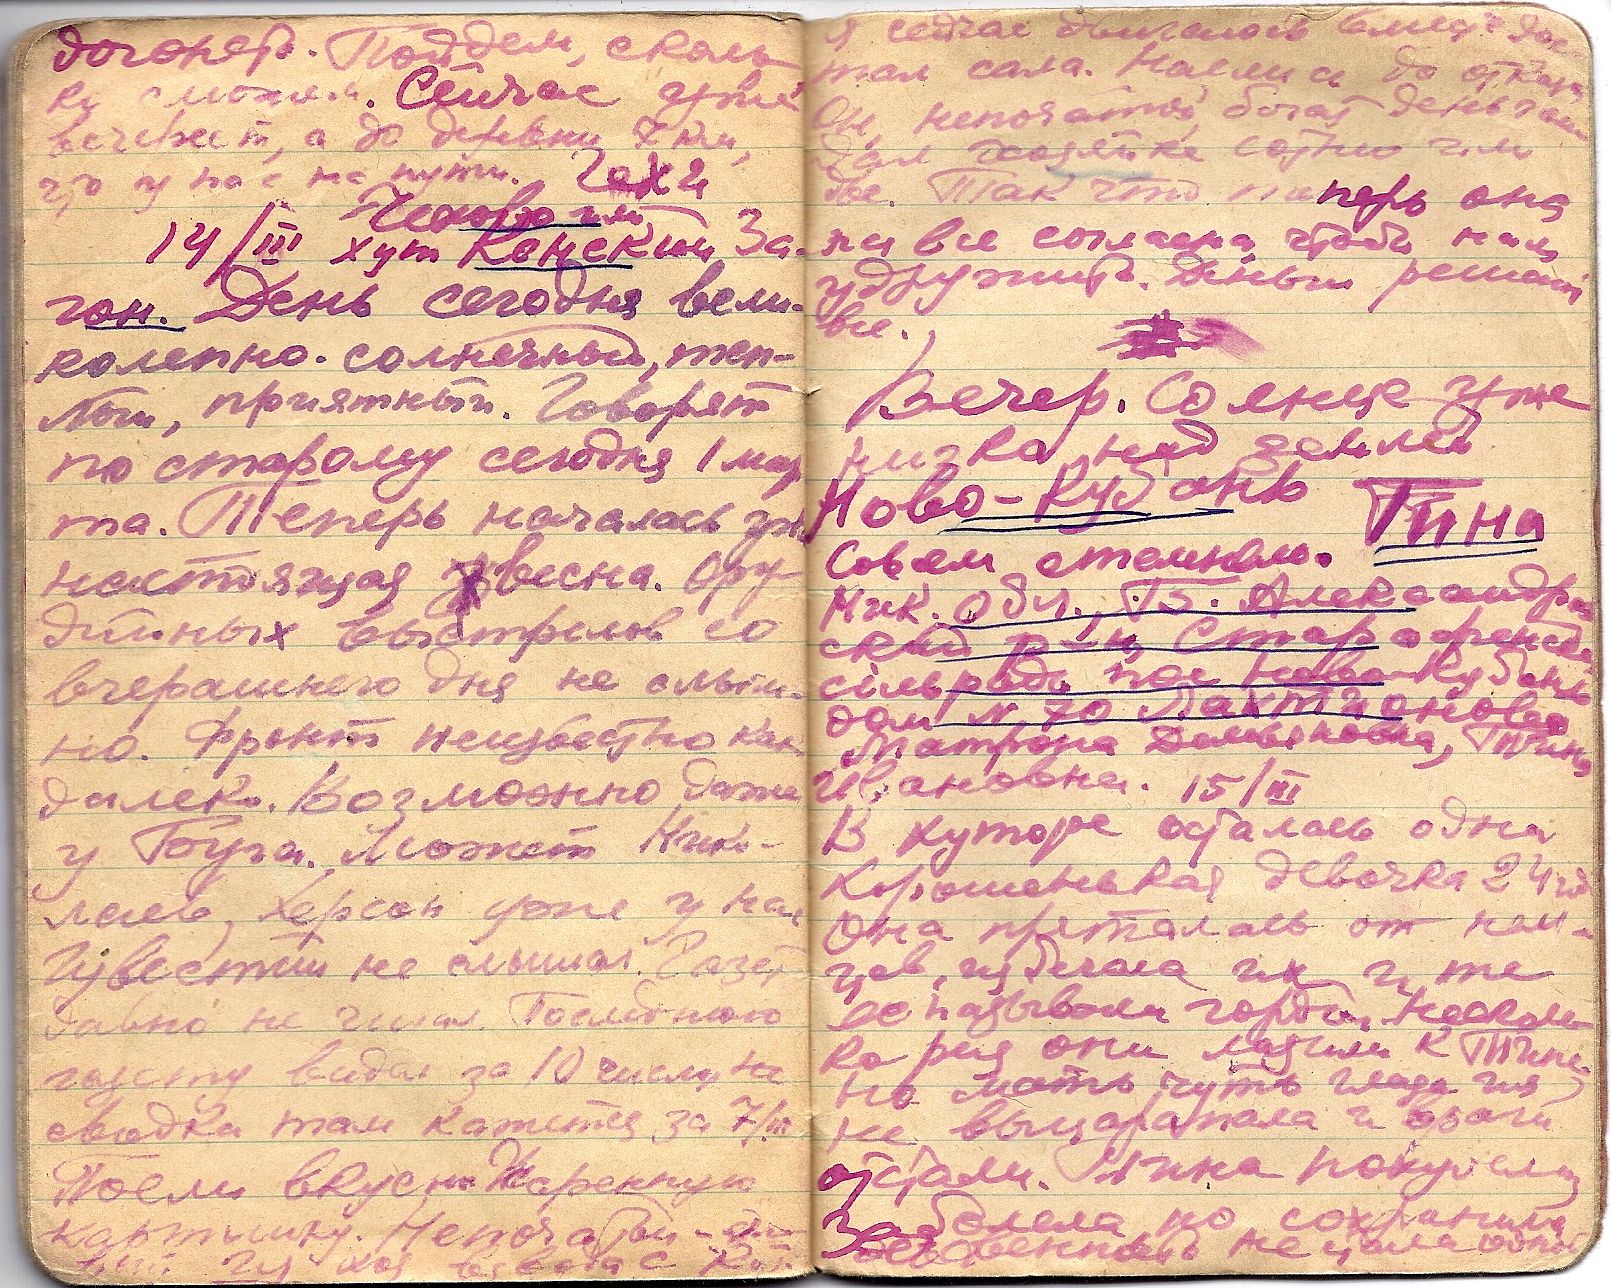 догонят. Пойдем, сколь-
ко сможем. Сейчас уже
вечереет, а до деревни 8 км,
что у нас на пути.
Чехово или
14/III хут Конский За-
гон. День сегодня вели-
колепно. солнечный, теп-
лый, приятный. Говорят
по старому сегодня 1 мар
та. Теперь началась уж
настоящая весна. Ору-
дийных выстрелов со
вчерашнего дня не слыш-
но. Фронт неизвестно как
далеко. Возможно даже
у Буга. Может Нико-
лаев, Херсон уже у нас
Известий не слышал. Газет
давно не читал. Последнюю
газету видал за 10 число, но
сводка там кажется за 7/III
Поели вкусно жаренную
картошку. Непочатый -
я сейчас двигаюсь дос-
тал сала. Наелись до отказа
Он, непочатый, богат деньгами
Дал хозяйке сотню или
две. Так что типерь она
на все согласна чтобы нам
удружить. Деньги решают
все.
Вечер. Солнце уже
низко над землей
Ново-Кубань Нина
Совсем стемнело.
Ник. обл., Александров
ский р-н,
сільрада пос Ново-Кубань
дом N 70 Лахтионова
Матрона Демьяновна, Нина
Ивановна. 15/III
В хуторе осталась одна
хорошенькая девочка 24 год
Она пряталась от нем-
цев, избегала их и те
ее называли гордой, несколь
ко раз они лазили к Нине
но мать чуть глаза им
не выцарапала и враги
отстали. Нина похудела
заболела но сохранила